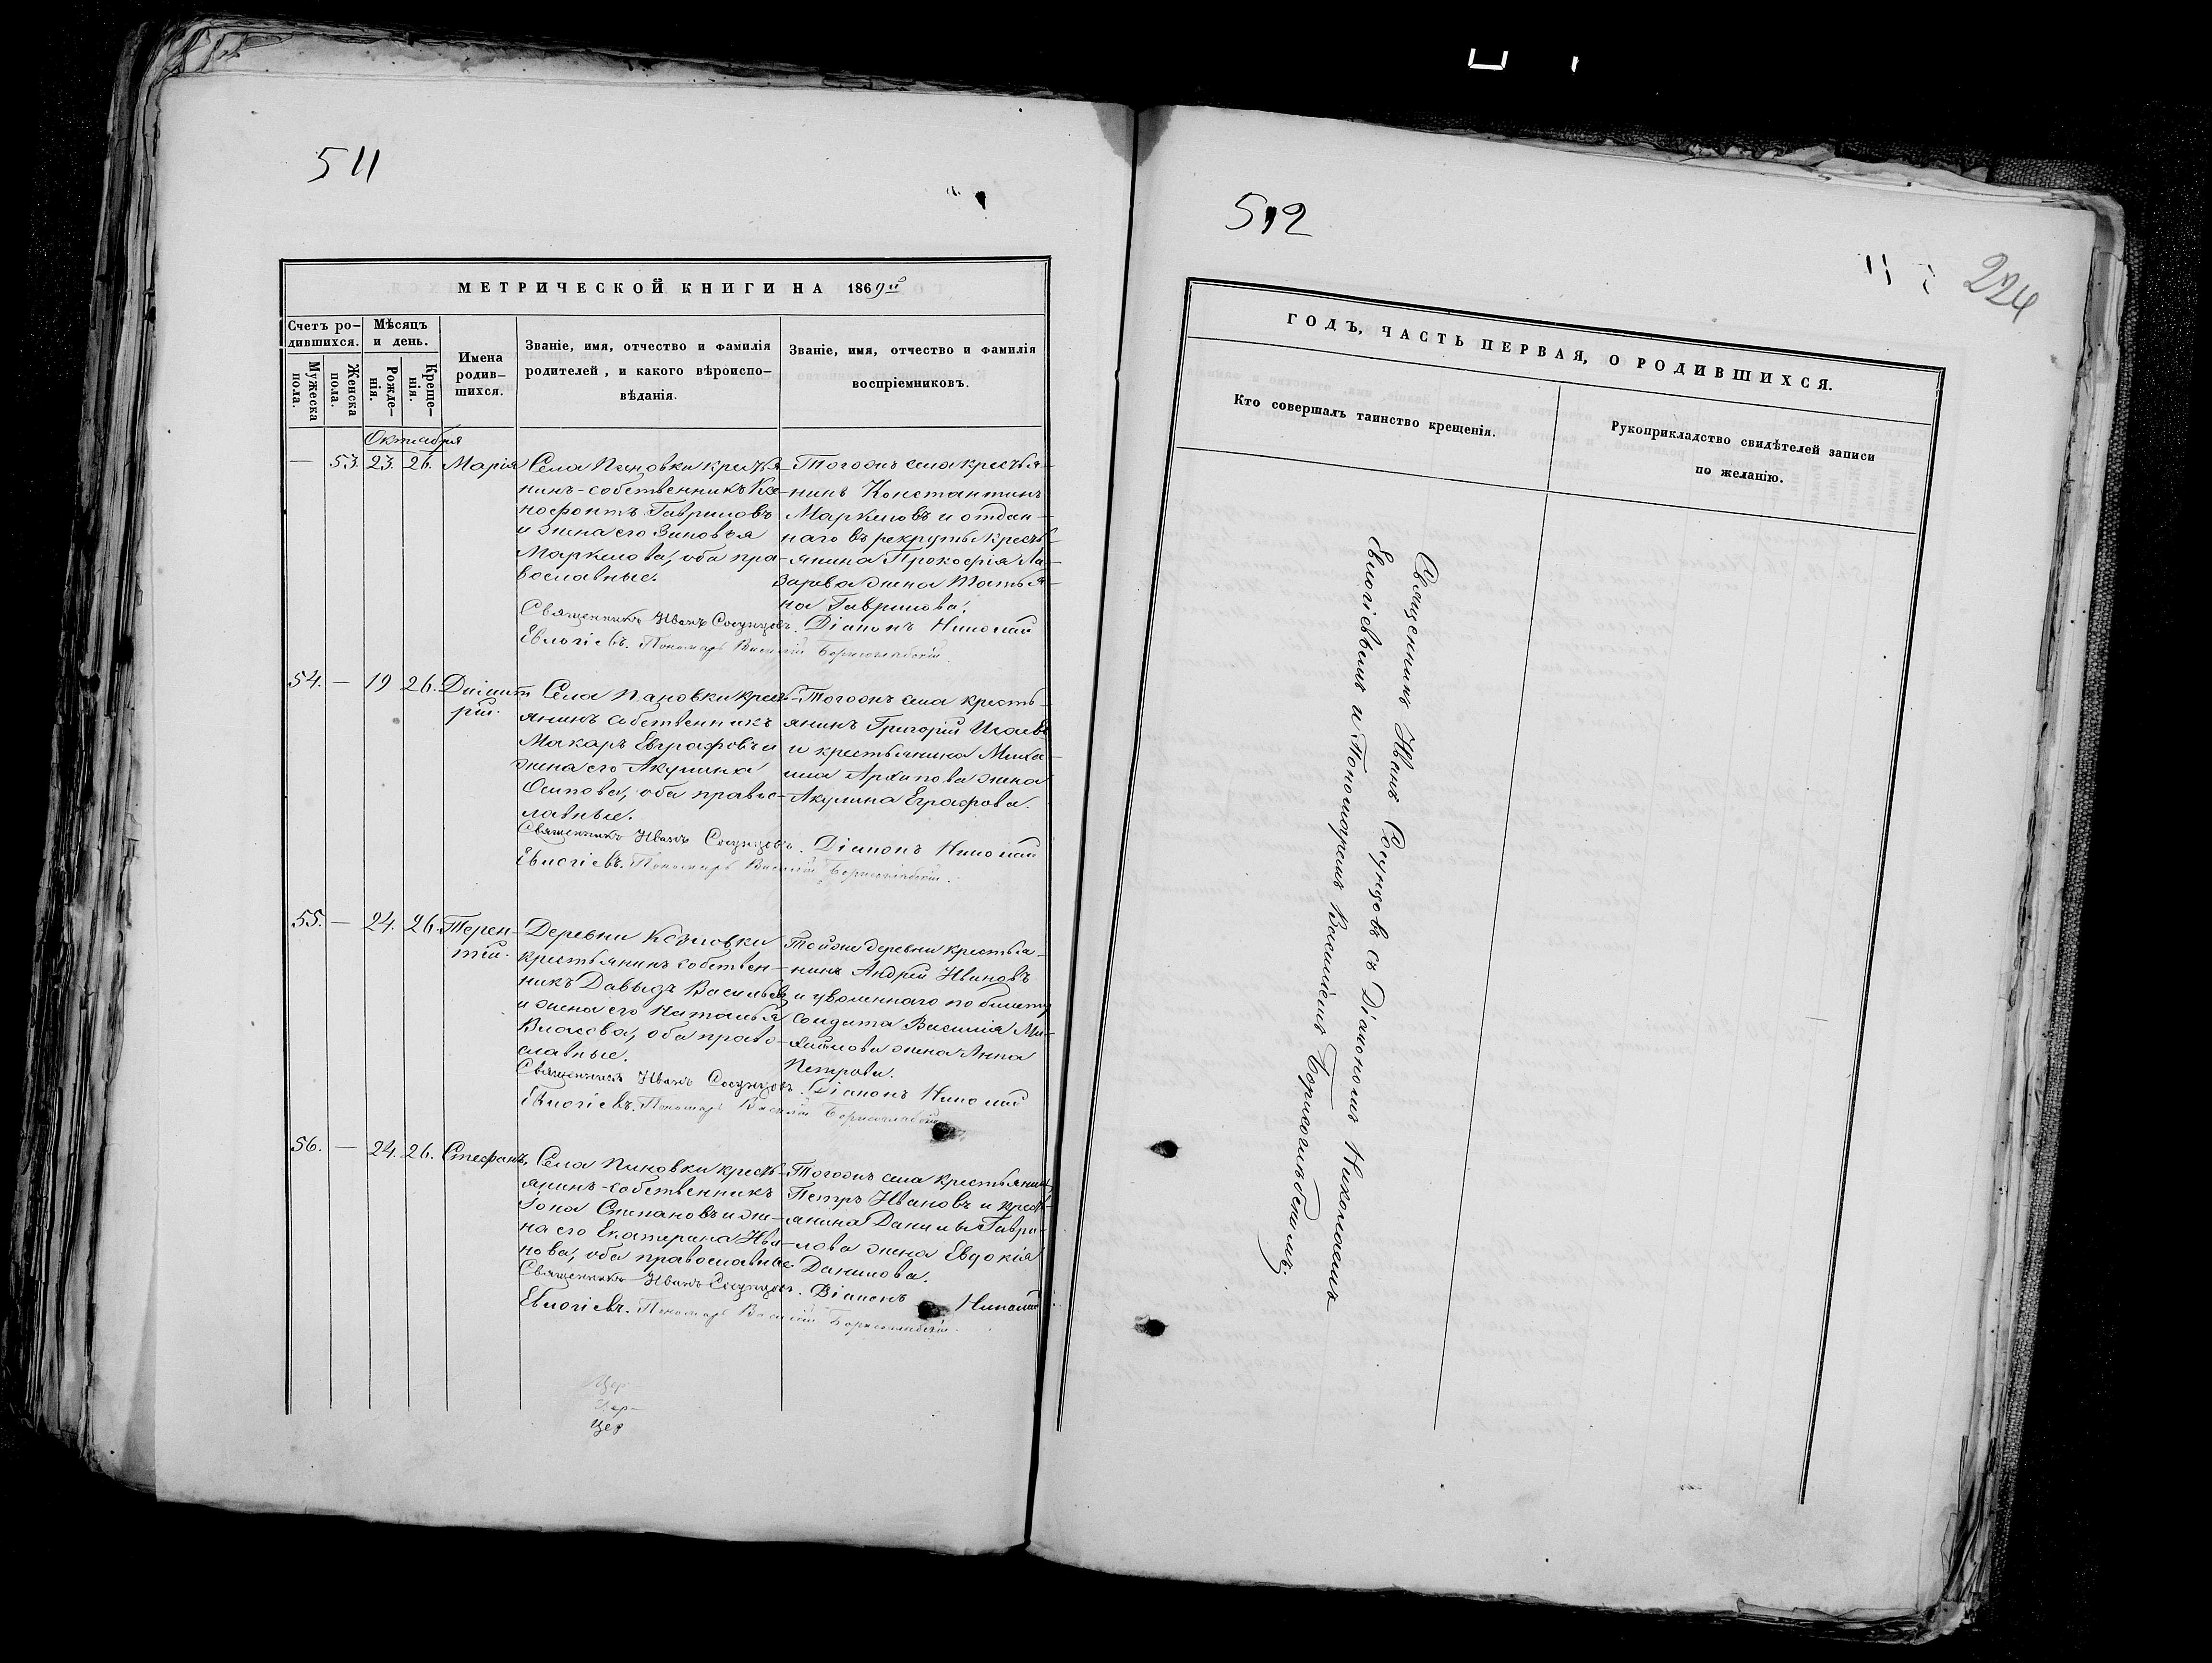 511
МЕТРИЧЕСКОЙ КНИГИ НА 1869й
Счетъ ро-
дившихся.
Мѣсяцъ
и день.
Мужеска
пола.
Женска
пола.
Рожде-
нія.
Креще-
нія.
Имена
родив-
шихся.
Званіе, имя, отчество и фамилія
родителей, и какого вѣроиспо-
вѣданія.
Званіе, имя, отчество и фамилія
воспріемниковъ.
Октября
— 53. 23. 26. Марія
Села Пановки кресть-
нинъ-собственникъ Ксе-
нофонтъ Гавриловъ
и жена его Зиновья
Маркелова, оба пра-
вославные.
Тогожъ села крестья-
нинъ Константинъ
Маркеловъ и отдан-
наго въ рекруты кресть-
янина Прокофія Ла-
зарева жена Татья-
на Гаврилова.
Священникъ Иванъ Сосунцовъ. Діаконъ Николай
Евлогіевъ. Пономарь Василій Борисоглѣбскій.
54. — 19 26. Димит
рій.
Села Пановки кресть-
янинъ собственникъ
Макаръ Евграфовъ и
жена его Акулина
Осипова, оба правос-
лавные.
Тогожъ села кресть-
янинъ Григорій Исаевъ
и крестьянина Миха-
ила Архипова жена
Акулина Еграфова.
Священникъ Иванъ Сосунцовъ. Діаконъ Николай
Евлогіевъ. Пономарь Василій Борисоглѣбскій.
55. — 24. 26. Терен-
тій.
Деревни Козловки
крестьянинъ собствен-
никъ Давыдъ Васильевъ
и жена его Наталья
Власова, оба право-
славные.
Тойже деревни крестья-
нинъ Андрей Ивановъ
и уволеннаго по билету
солдата Василія Ми-
хайлова жена Анна
Петрова.
Священникъ Иванъ Сосунцовъ. Діаконъ Николай
Евлогіевъ. Пономарь Василій Борисоглѣбскій.
56. — 24. 26. Стефанъ.
Села Пановки кресть-
янинъ-собственникъ
Іона Степановъ и же-
на его Екатерина Ива-
нова, оба православные.
Тогожъ села крестьянинъ
Петръ Ивановъ и кресть-
янина Данилы Гаври-
лова жена Евдокія
Данилова.
Священникъ Иванъ Сосунцовъ. Діаконъ Николай
Евлогіевъ. Пономарь Василій Борисоглѣбскій.
Цер
512
224
ГОДЪ, ЧАСТЬ ПЕРВАЯ, О РОДИВШИХСЯ.
Кто совершалъ таинство крещенія.
Рукоприкладство свидѣтелей записи
по желанію.
Священникъ Иванъ Сосунцовъ съ Діакономъ Николаемъ
Евлогіевымъ и Пономаремъ Василіемъ Борисоглѣбскимъ.